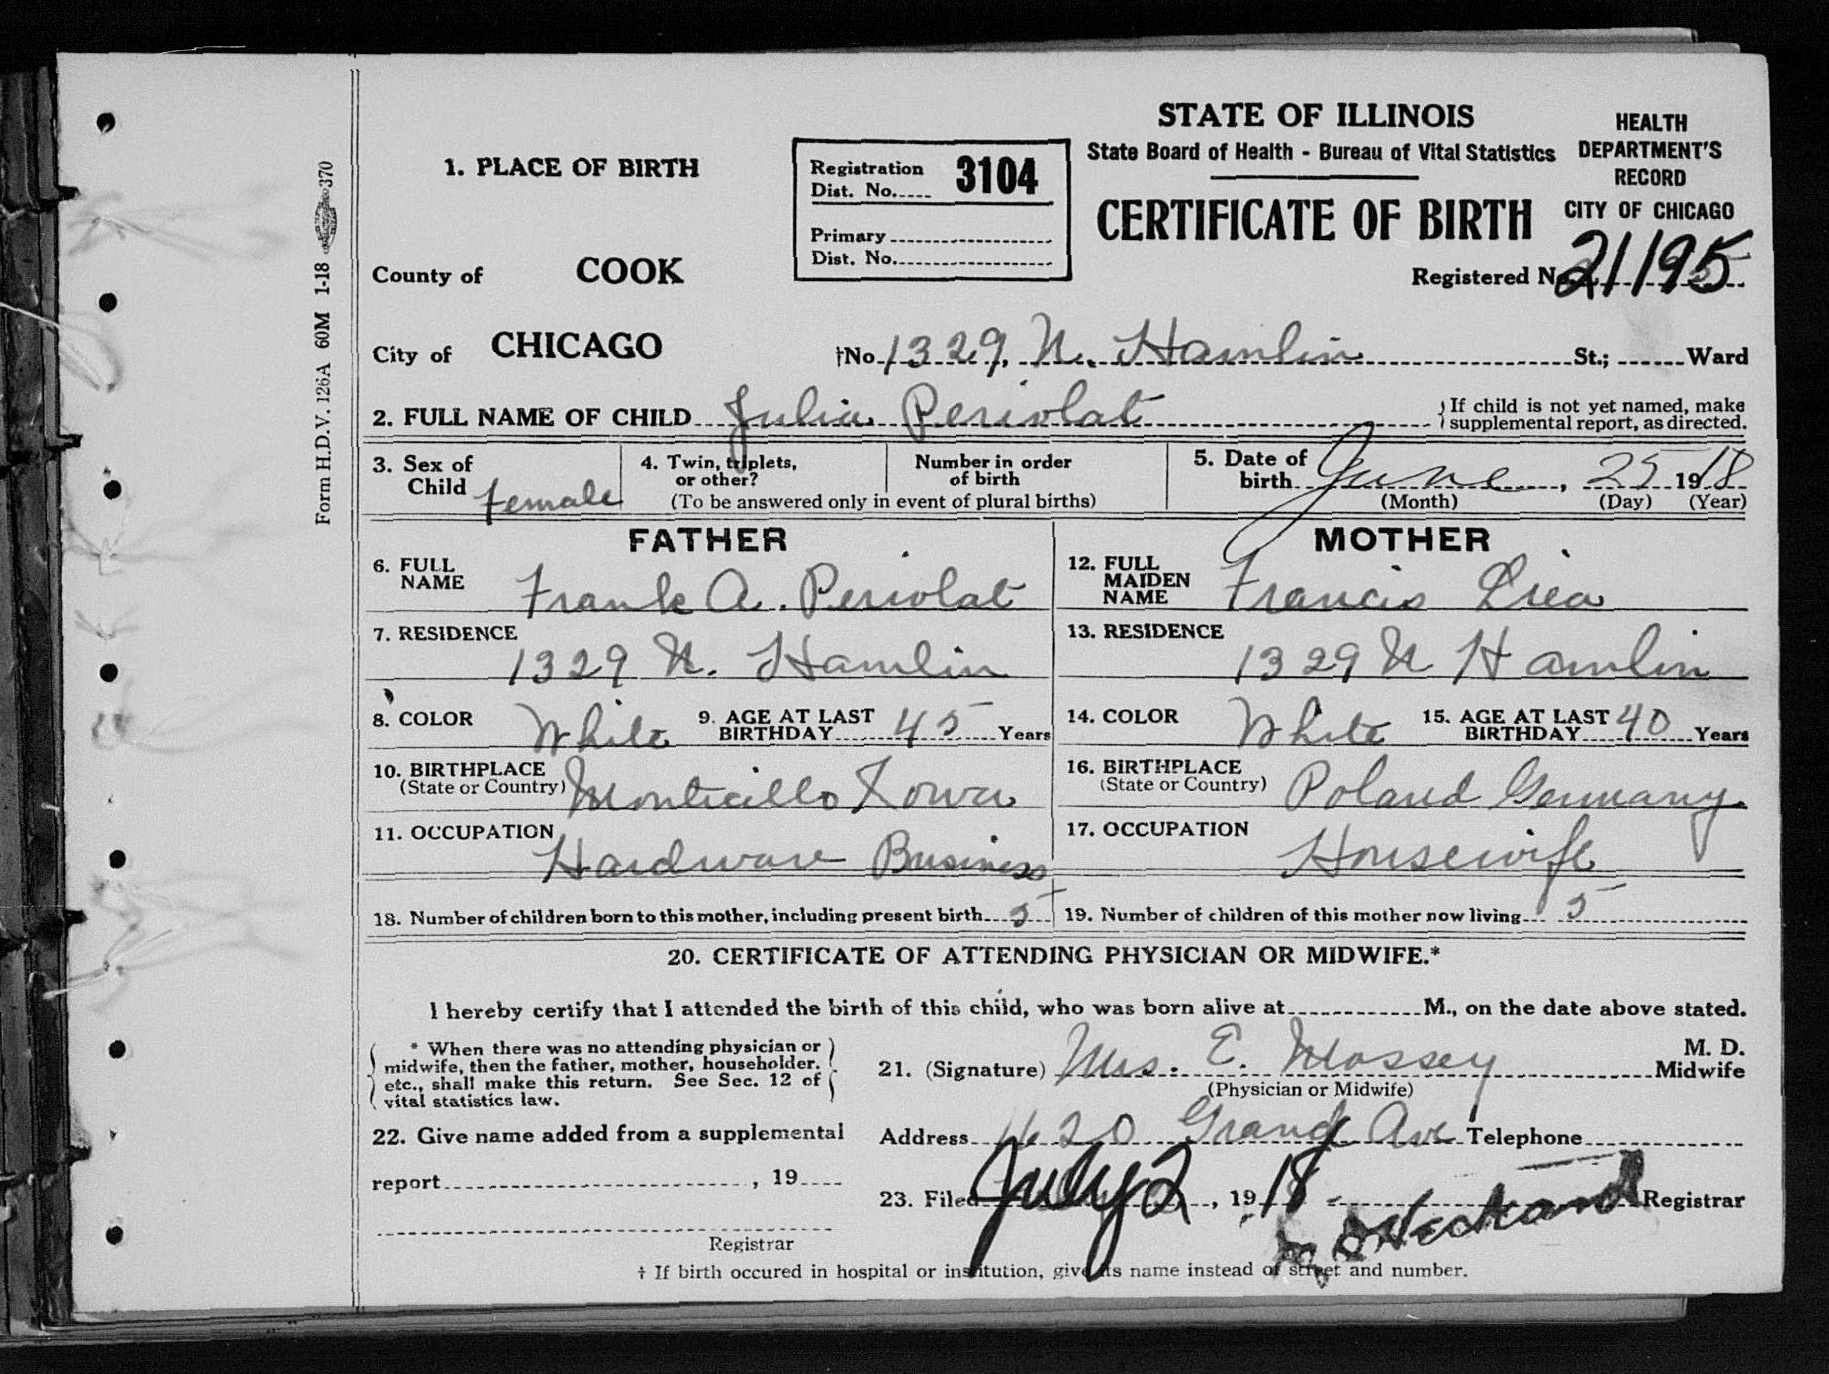 STATE OF ILLINOIS
State Board of Health - Bureau of Vital Statistics
CERTIFICATE OF BIRTH
HEALTH
DEPARTMENT'S
RECORD
CITY OF CHICAGO
Registered No. 21195
1. PLACE OF BIRTH
Registration
Dist. No. 3104
Primary
Dist. No.
County of COOK
City of CHICAGO †No. 1329 N. Hamlin St.; Ward
2. FULL NAME OF CHILD Julia Periolat
If child is not yet named, make
supplemental report, as directed.
3. Sex of
Child female
4. Twin, triplets,
or other?
Number in order
of birth
(To be answered only in event of plural births)
5. Date of
birth June, 25 1918
(Month) (Day) (Year)
FATHER
6. FULL
NAME Frank A. Periolat
7. RESIDENCE
1329 N. Hamlin
8. COLOR White 9. AGE AT LAST
BIRTHDAY 45 Years
10. BIRTHPLACE
(State or Country) Monticello Iowa
11. OCCUPATION
Hardware Business
MOTHER
12. FULL
MAIDEN
NAME Francis
13. RESIDENCE
1329 N Hamlin
14. COLOR White 15. AGE AT LAST
BIRTHDAY 40 Years
16. BIRTHPLACE
(State or Country) Poland Germany
17. OCCUPATION
Housewife
18. Number of children born to this mother, including present birth 5
19. Number of children of this mother now living 5
20. CERTIFICATE OF ATTENDING PHYSICIAN OR MIDWIFE.*
I hereby certify that I attended the birth of this child, who was born alive at M., on the date above stated.
* When there was no attending physician or
midwife, then the father, mother, householder.
etc., shall make this return. See Sec. 12 of
vital statistics law.
21. (Signature) Mrs. E. Mossey M. D.
Midwife
(Physician or Midwife)
22. Give name added from a supplemental
report , 19
Registrar
Address Grand Ave Telephone
23. Filed July 2, 1918 Registrar
† If birth occured in hospital or institution, give its name instead of street and number.
Form H.D.V. 126A 60M 1-18 370